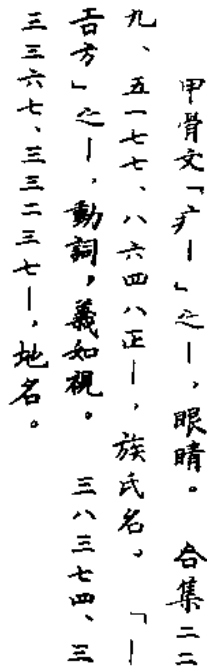 甲骨文「疒｜」之｜，眼睛。　合集二二
九、五一七七、八六四八正｜，族氏名。　「｜
𠮷方」之｜，動詞，義如視。　三八三七四、三
三三六七、三三二三七｜，地名。